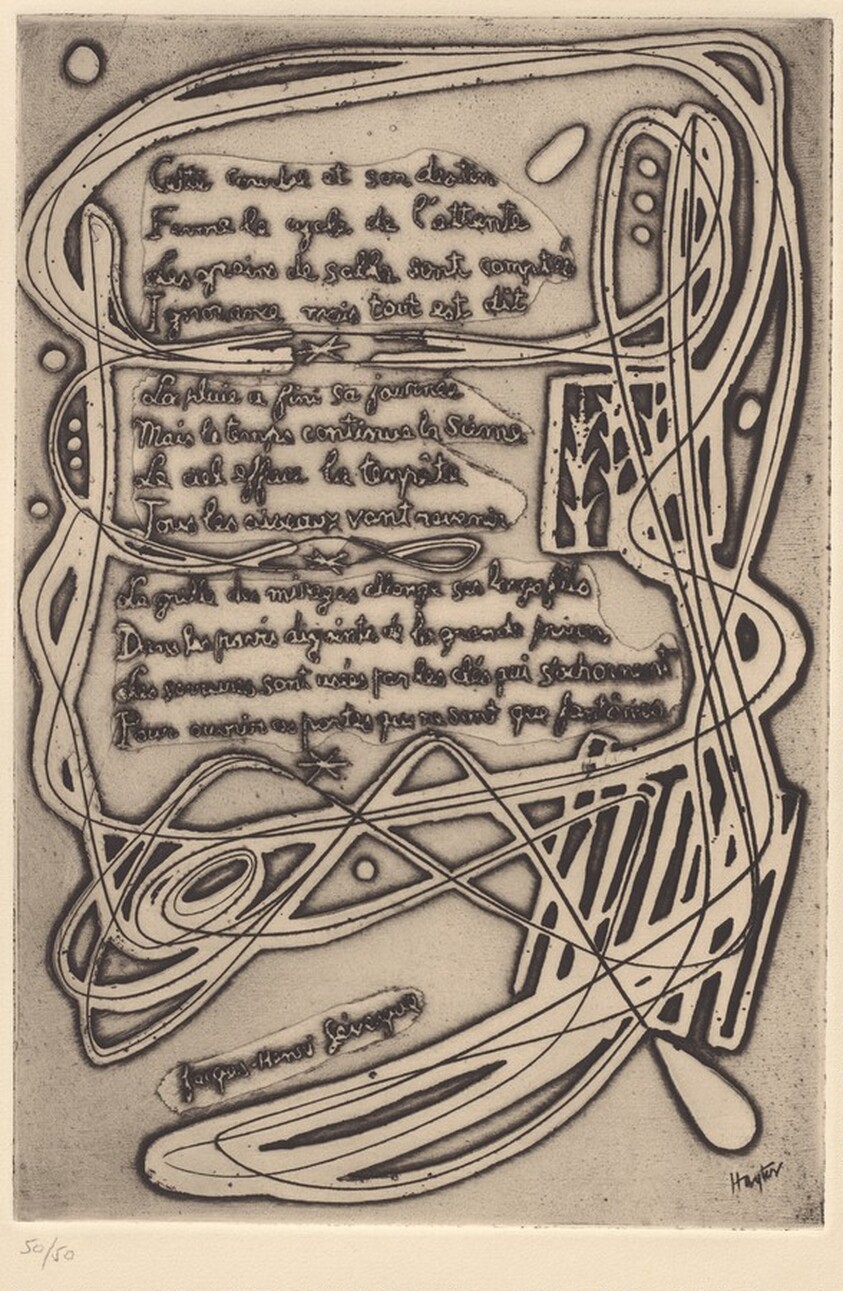 Cette courbe et son destin
Ferme le cycle de l'attente
Les grains de sable sont comptés
Ignorance mais tout est dit
La pluie a fini sa journée
Mais le temps continue la sienne
Le ciel efface la tempête
Tous les oiseaux vont revenir
La grille des mirages change ses longs fils
Dans les parvis de la grande prison
Les serrures sont usées par les clés qui s'acharnent
Pour ouvrir ces portes qui ne sont que fantômes
Jacques-Henri Lévesque
Hayter
50/50